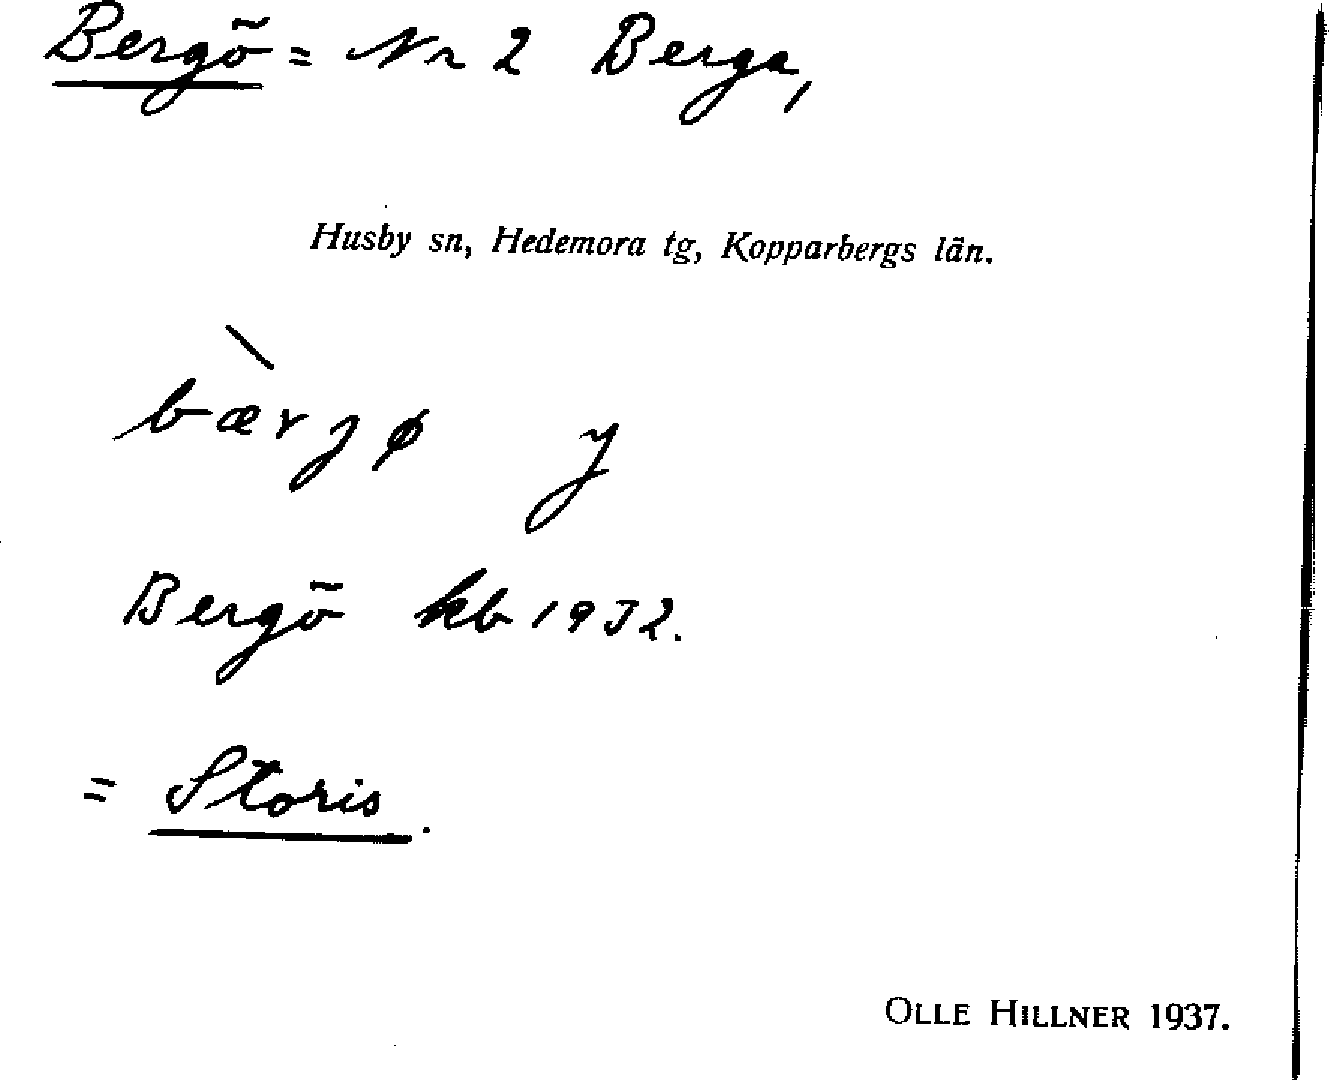 Bergö = Nr 2 Berga,
Husby sn, Hedemora tg, Kopparbergs län.
bæ̀rjø y
Bergö kb 1932.
= Storis.
OLLE HILLNER 1937.